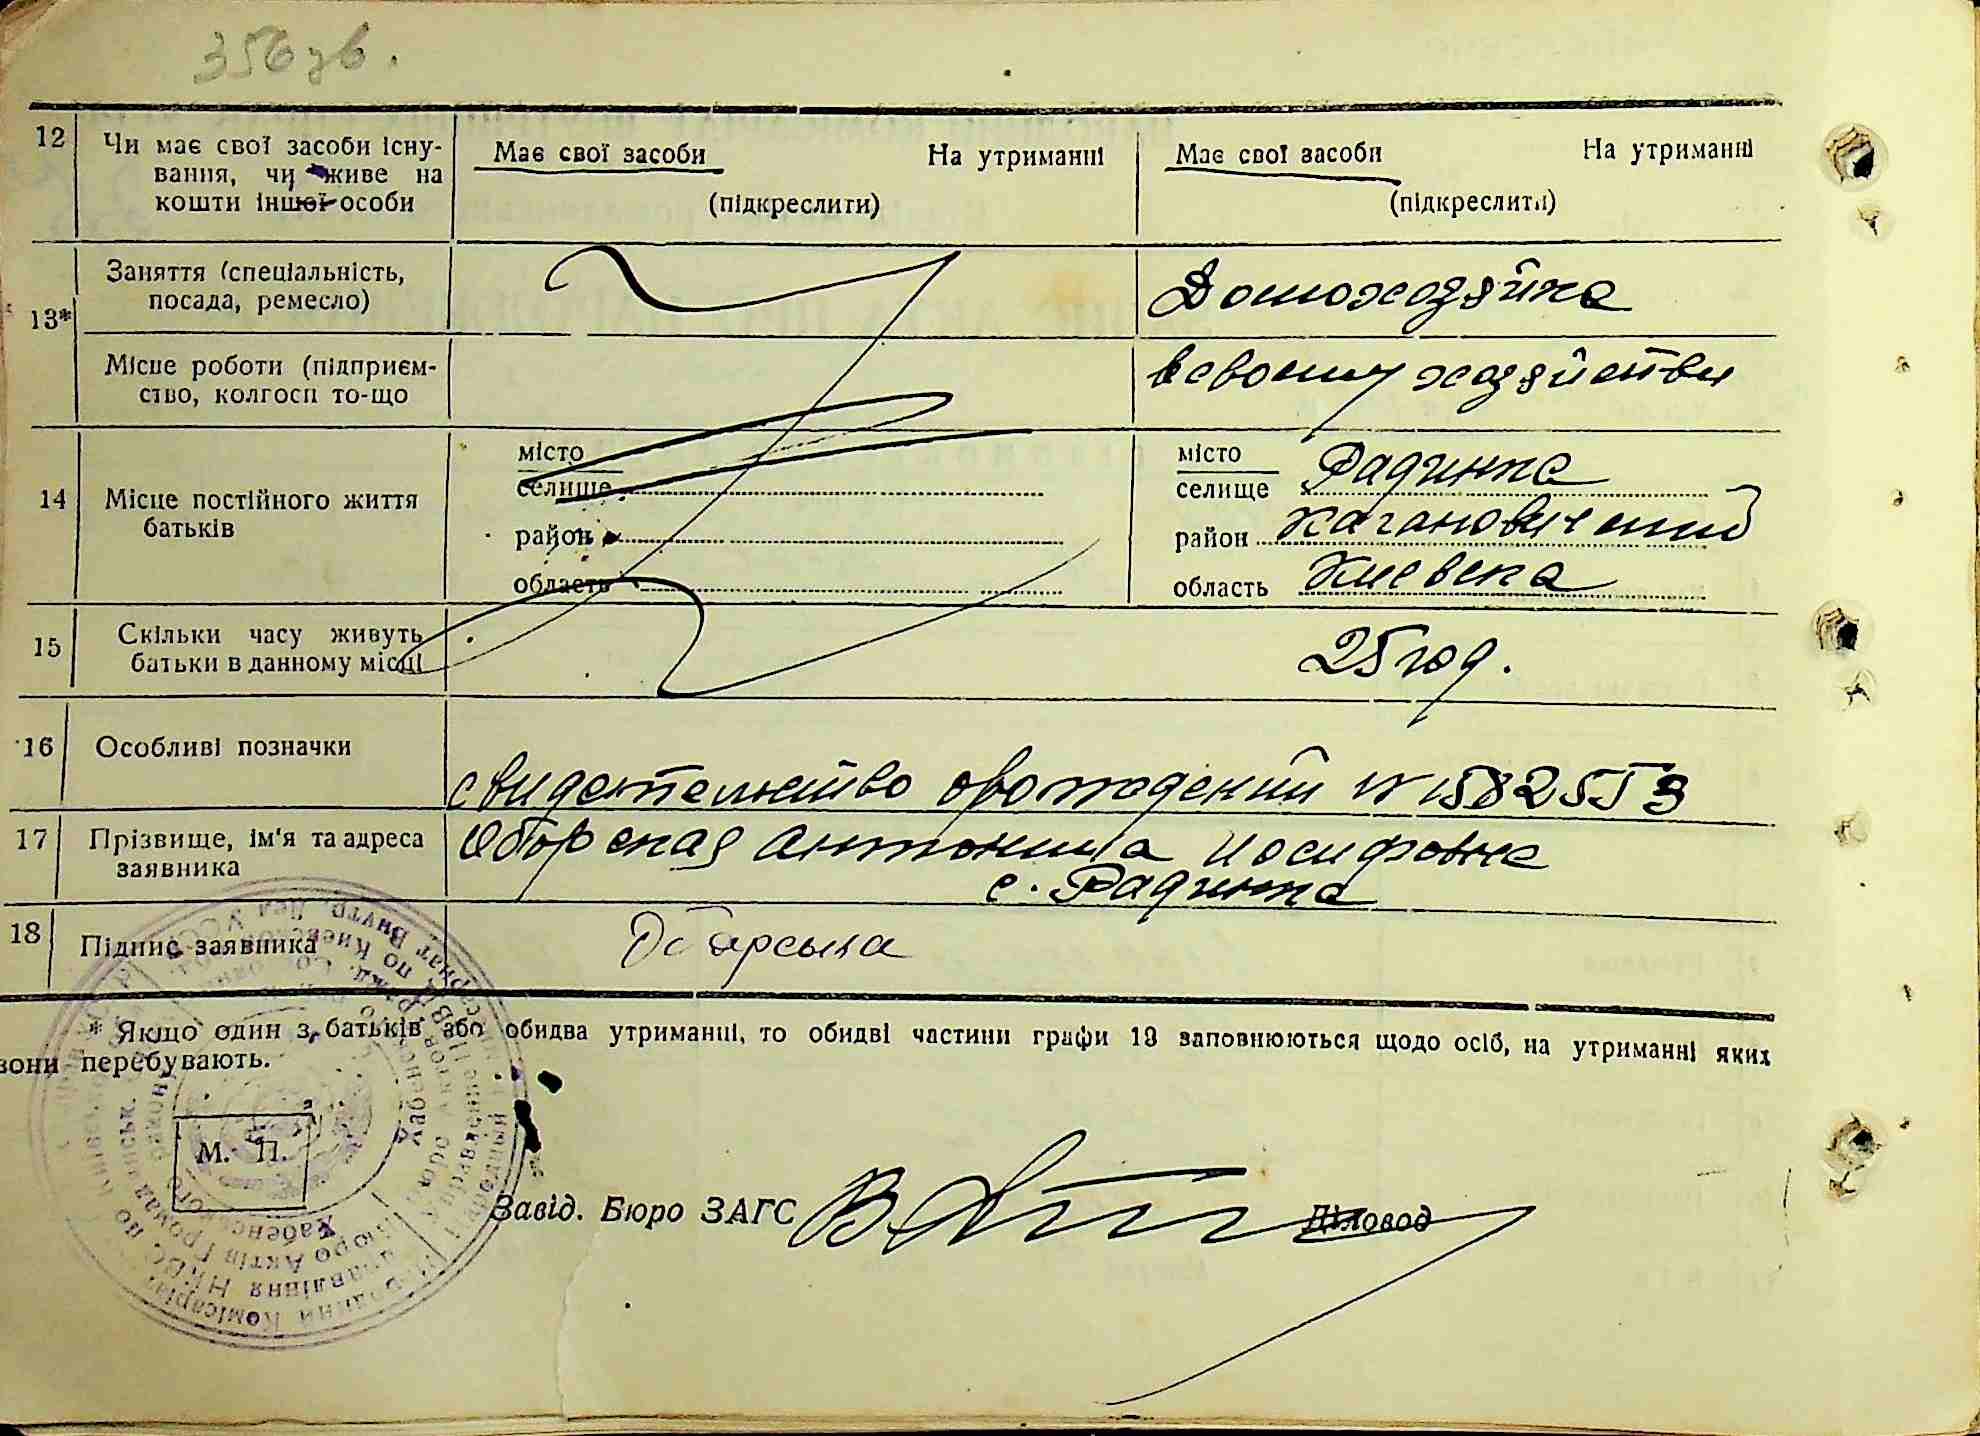 356 зв.
12 Чи має свої засоби існу-
вання, чи живе на
кошти іншої особи
Має свої засоби На утриманні
(підкреслити)
Має свої засоби На утриманні
(підкреслити)
13*
Заняття (спеціальність,
посада, ремесло)
Домохозяйка
Місце роботи (підприєм-
ство, колгосп то-що
в своему хозяйстви
14 Місце постійного життя
батьків
місто
селище
район
область
місто
селище Радинка
район Кагановический
область Киевска
15 Скільки часу живуть
батьки в данному місці
25 год.
16 Особливі позначки
свидетельство оврождении №
17 Прізвище, ім'я та адреса
заявника
Оборская Антонина Иосифовна
с. Радинка
18 Підпис заявника
Обарська
* Якщо один з батьків або обидва утриманці, то обидві частини графи 13 заповнюються щодо осіб, на утриманні яких
вони перебувають.
М. П.
Завід. Бюро ЗАГС
Діловод